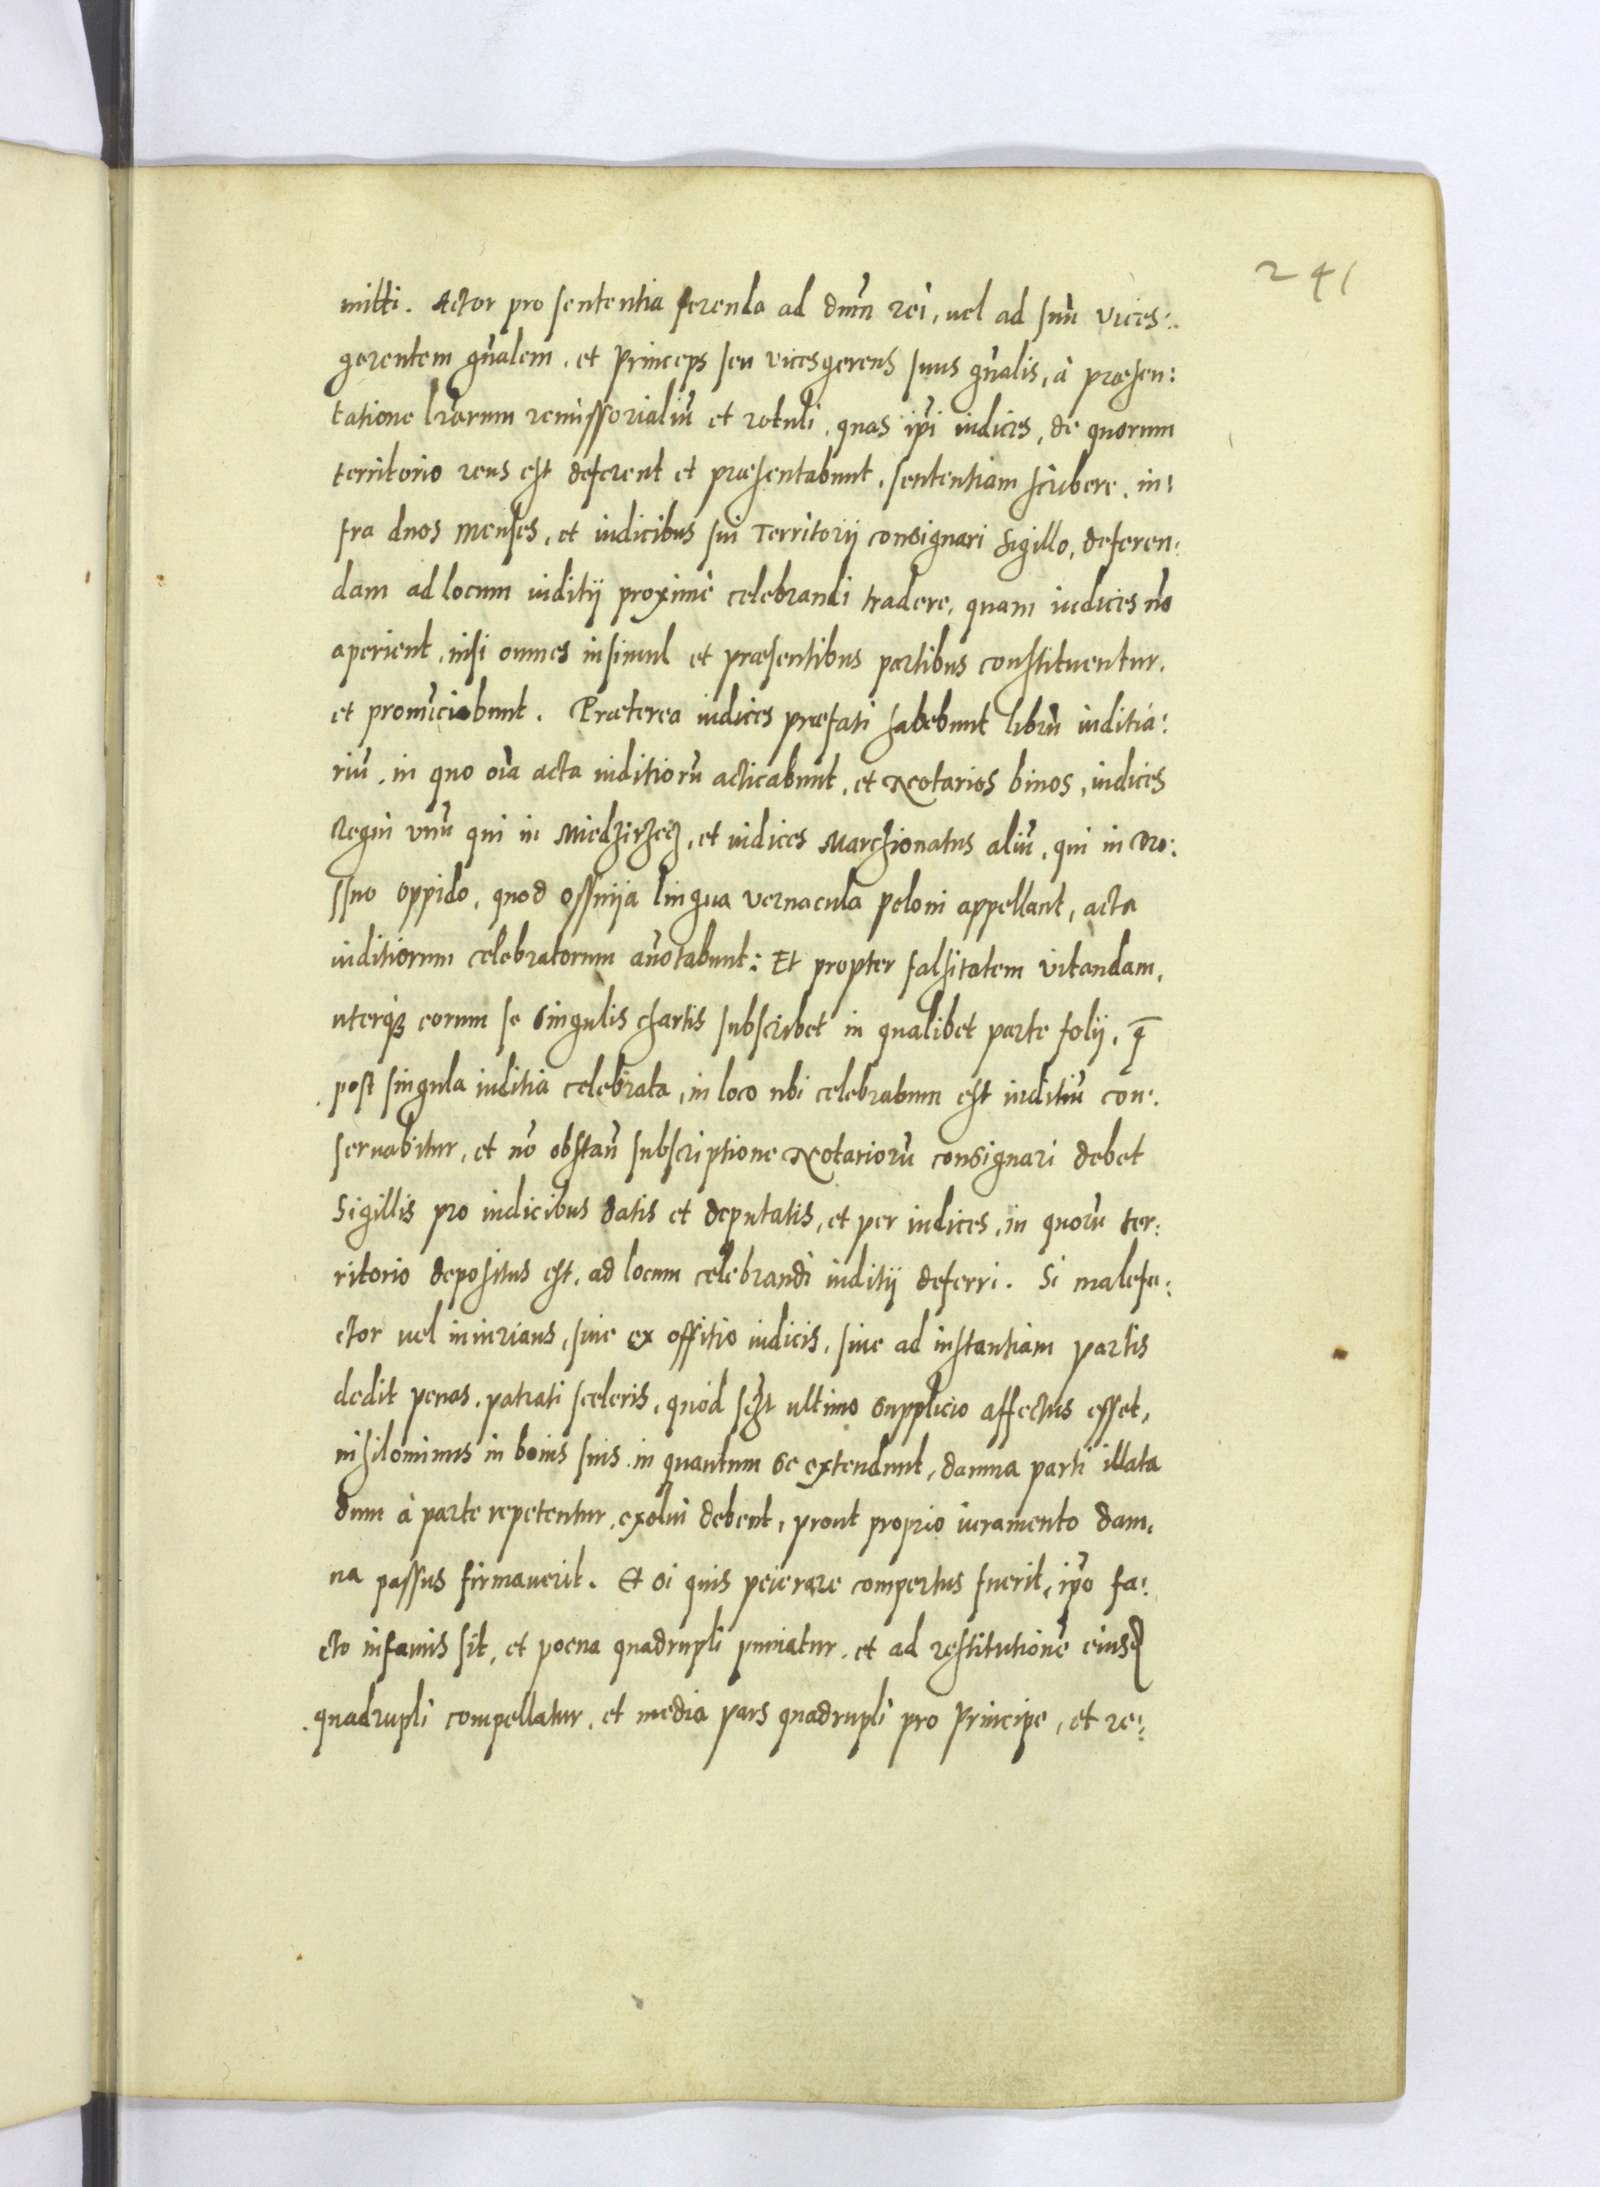 241
mitti. Actor pro sententia ferenda ad dnm̄ rei, vel ad suū vices:
gerentem gn̄alem, et Princeps seu vicesgerens suus gn̄alis, à præsen:
tatione lr̄arum remissorialiū et rotuli, quas ip̄i iudices, de quorum
territorio reus est deferent et præsentabunt, sententiam scribere, in:
fra duos menses, et iudicibus sui Territorij consignari sigillo, deferen:
dam ad locum iuditij proximè celebrandi tradere, quam iudices nō
aperient, nisi omnes insimul et præsentibus partibus constituentur,
et pronūciabunt. Præterea iudices præfati habebunt librū iuditia:
riū, in quo oīa acta iuditiorū acticabunt, et Notarios binos, iudices
Regni vnū qui in Miedzirzecz, et iudices Marchionatus aliū, qui in Dro:
ssno oppido, quod Ossnija lingua vernacula poloni appellant, acta
iuditiorum celebratorum an̄otabunt: Et propter falsitatem vitandam,
uterq; eorum se singulis chartis subscribet in qualibet parte folij, q̄
post singula iuditia celebrata, in loco ubi celebratum est iuditiū con:
seruabitur, et nō obstan̄ subscriptione Notariorū consignari debet
Sigillis pro iudicibus datis et deputatis, et per iudices, in quorū ter:
ritorio depositus est, ad locum celebrandi iuditij deferri. Si malefa:
ctor vel iniurians, siue ex offitio iudicis, siue ad instantiam partis
dedit penas, patrati sceleris, quòd sczt ultimo supplicio affectus esset,
nihilominus in bonis suis in quantum se extendunt, damna parti illata
dum à parte repetentur, exolui debent, prout proprio iuramento dam,
na passus firmauerit. Et si quis peierare compertus fuerit, ip̄o fa:
cto infamis sit, et poena quadrupli puniatur, et ad restitutionē eiusd
quadrupli compellatur, et media pars quadrupli pro Principe, et re: